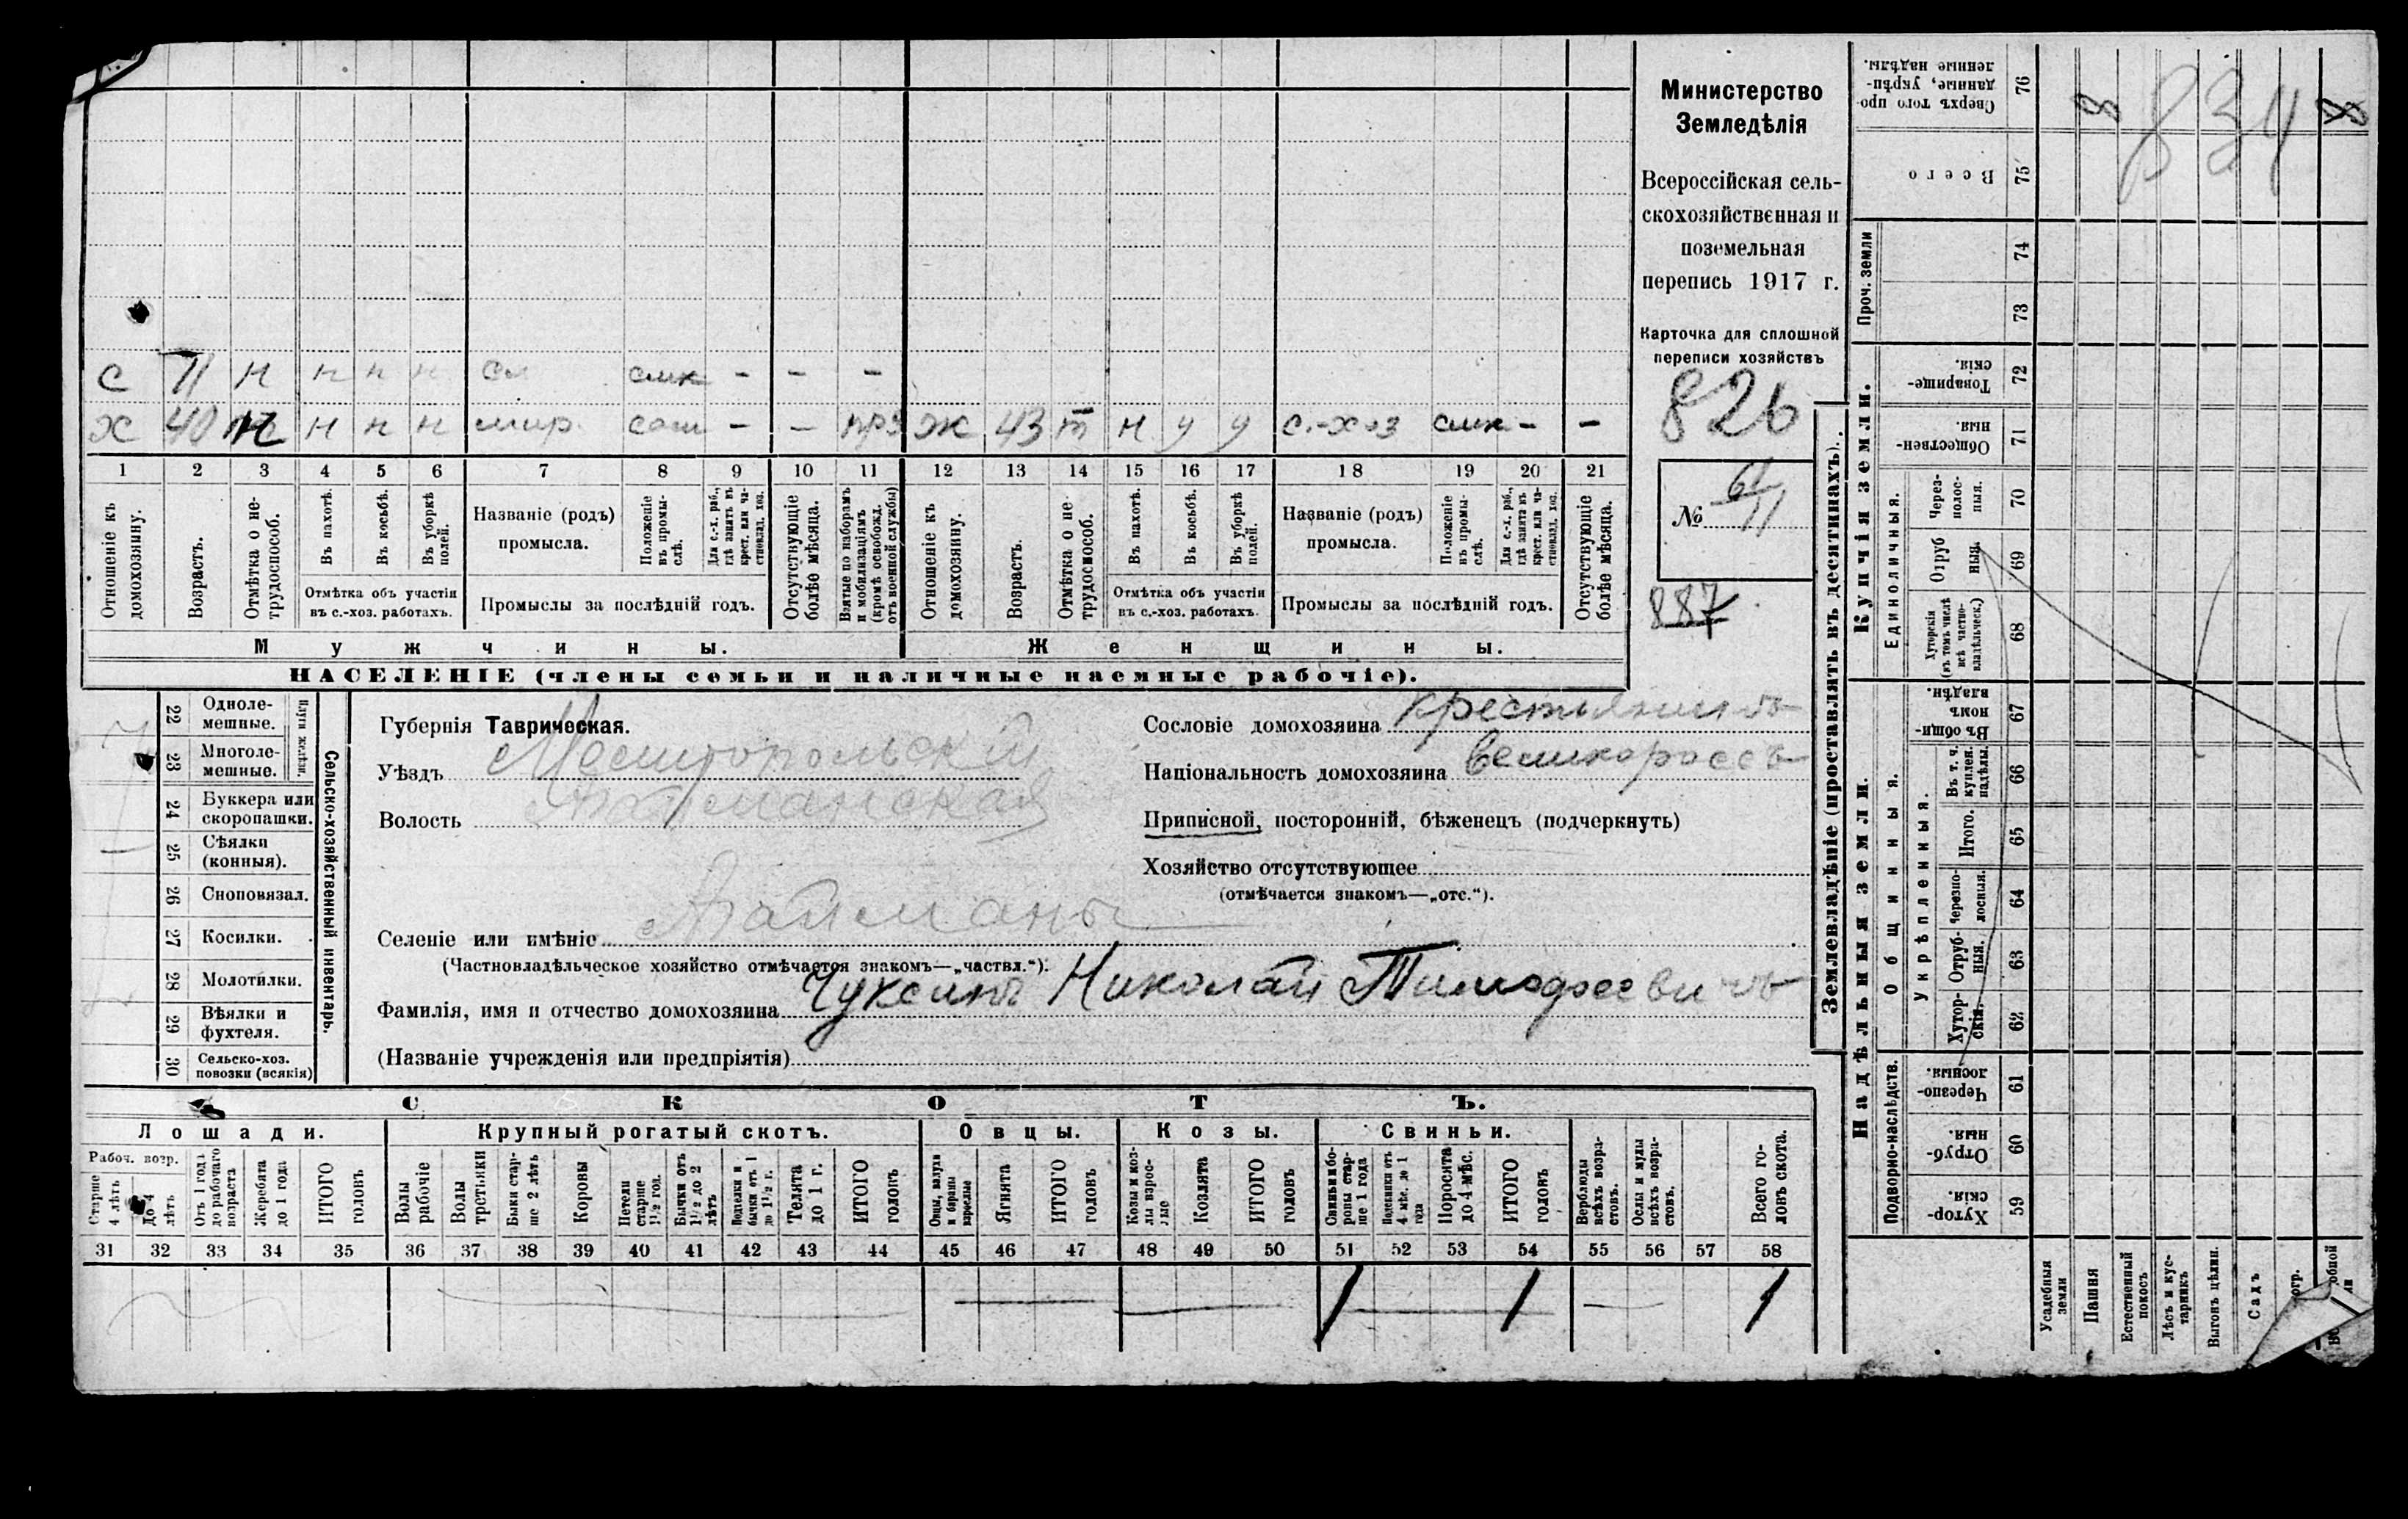 с 71 н н н н смк – – –
х 40 н н н н мир. сам – – прз ж 43 т н у у с.-хоз смк – –
1 2 3 4 5 6 7 8 9 10 11 12 13 14 15 16 17 18 19 20 21
Отношеніе къ домохозяину.
Возрастъ.
Отмѣтка о не-трудоспособ.
Въ пахотѣ.
Въ косьбѣ.
Въ уборкѣ полей.
Отмѣтка объ участіи
въ с.-хоз. работахъ.
Названіе (родъ)
промысла.
Положеніе въ промы-слѣ.
Для с.-х. раб., гдѣ занятъ въ крест. или ча-стновлад. хоз.
Промыслы за послѣдній годъ.
Отсутствующіе болѣе мѣсяца.
Взятые по наборамъ и мобилизаціямъ (кромѣ освобожд. отъ военной службы)
Отношеніе къ домохозяину.
Возрастъ.
Отмѣтка о не-трудоспособ.
Въ пахотѣ.
Въ косьбѣ.
Въ уборкѣ полей.
Отмѣтка объ участіи
въ с.-хоз. работахъ.
Названіе (родъ)
промысла.
Положеніе въ промы-слѣ.
Для с.-х. раб., гдѣ занята въ крест. или ча-стновлад. хоз.
Промыслы за послѣдній годъ.
Отсутствующіе болѣе мѣсяца.
Мужчины. Женщины.
НАСЕЛЕНІЕ (члены семьи и наличные наемные рабочіе).
Министерство
Земледѣлія
Всероссійская сель-
скохозяйственная и
поземельная
перепись 1917 г.
Карточка для сплошной
переписи хозяйствъ
826
№ 61/11
887
Сельско-хозяйственный инвентарь.
Плуги желѣзн.
22 Одноле-мешные.
23 Многоле-мешные.
24 Буккера или скоропашки.
25 Сѣялки (конныя).
26 Сноповязал.
27 Косилки.
28 Молотилки.
29 Вѣялки и фухтеля.
30 Сельско-хоз. повозки (всякія)
Губернія Таврическая.
Уѣздъ Мелитопольскій
Волость Атманская
Селеніе или имѣніе Атманы
(Частновладѣльческое хозяйство отмѣчается знакомъ—„частвл.“).
Фамилія, имя и отчество домохозяина Чуксинъ Николай Тимофеевичъ
(Названіе учрежденія или предпріятія)
Сословіе домохозяина крестьянинъ
Національность домохозяина великороссъ
Приписной, посторонній, бѣженецъ (подчеркнуть)
Хозяйство отсутствующее
(отмѣчается знакомъ—„отс.“).
СКОТЪ.
Лошади. Крупный рогатый скотъ. Овцы. Козы. Свиньи.
Рабоч. возр.
Старше 4 лѣтъ
До 4 лѣтъ
Отъ 1 года до рабочаго возраста
Жеребята до 1 года
ИТОГО головъ
Волы рабочіе
Волы третьяки
Быки стар-ше 2 лѣтъ
Коровы
Нетели старше 1½ год.
Бычки отъ 1½ до 2 лѣтъ
Подтелки и бычки отъ 1 до 1½ г.
Телята до 1 г.
ИТОГО головъ
Овцы, валухи и бараны взрослые
Ягнята
ИТОГО головъ
Козы и коз-лы взрос-лые
Козлята
ИТОГО головъ
Свиньи и бо-ровы стар-ше 1 года
Подсвинки отъ 4 мѣс. до 1 года
Поросята до 4 мѣс.
ИТОГО головъ
Верблюды всѣхъ возра-стовъ.
Ослы и мулы всѣхъ возра-стовъ.
Всего го-ловъ скота.
31 32 33 34 35 36 37 38 39 40 41 42 43 44 45 46 47 48 49 50 51 52 53 54 55 56 57 58
1 1 1
Землевладѣніе (проставлять въ десятинахъ).
Надѣльныя земли. Купчія земли.
Подворно-наслѣдств.
Общинныя.
Укрѣпленныя.
Единоличныя.
Проч. земли
Сверхъ того про-данные, укрѣп-ленные надѣлы. 76
Всего 75
74
73
Товарище-скія. 72
Обществен-ныя. 71
Через-полос-ныя. 70
Отруб-ныя. 69
Хуторскія (въ томъ числѣ всѣ частно-владѣльческ.) 68
Въ общин-номъ владѣн. 67
Въ т. ч. куплен. надѣлы. 66
Итого. 65
Черезпо-лосныя. 64
Отруб-ныя. 63
Хутор-скія. 62
Черезпо-лосныя. 61
Отруб-ныя. 60
Хутор-скія. 59
Усадебныя земли
Пашня
Естественный покосъ
Лѣсъ и кус-тарникъ
Выгонъ цѣлин.
Садъ
8 834 8